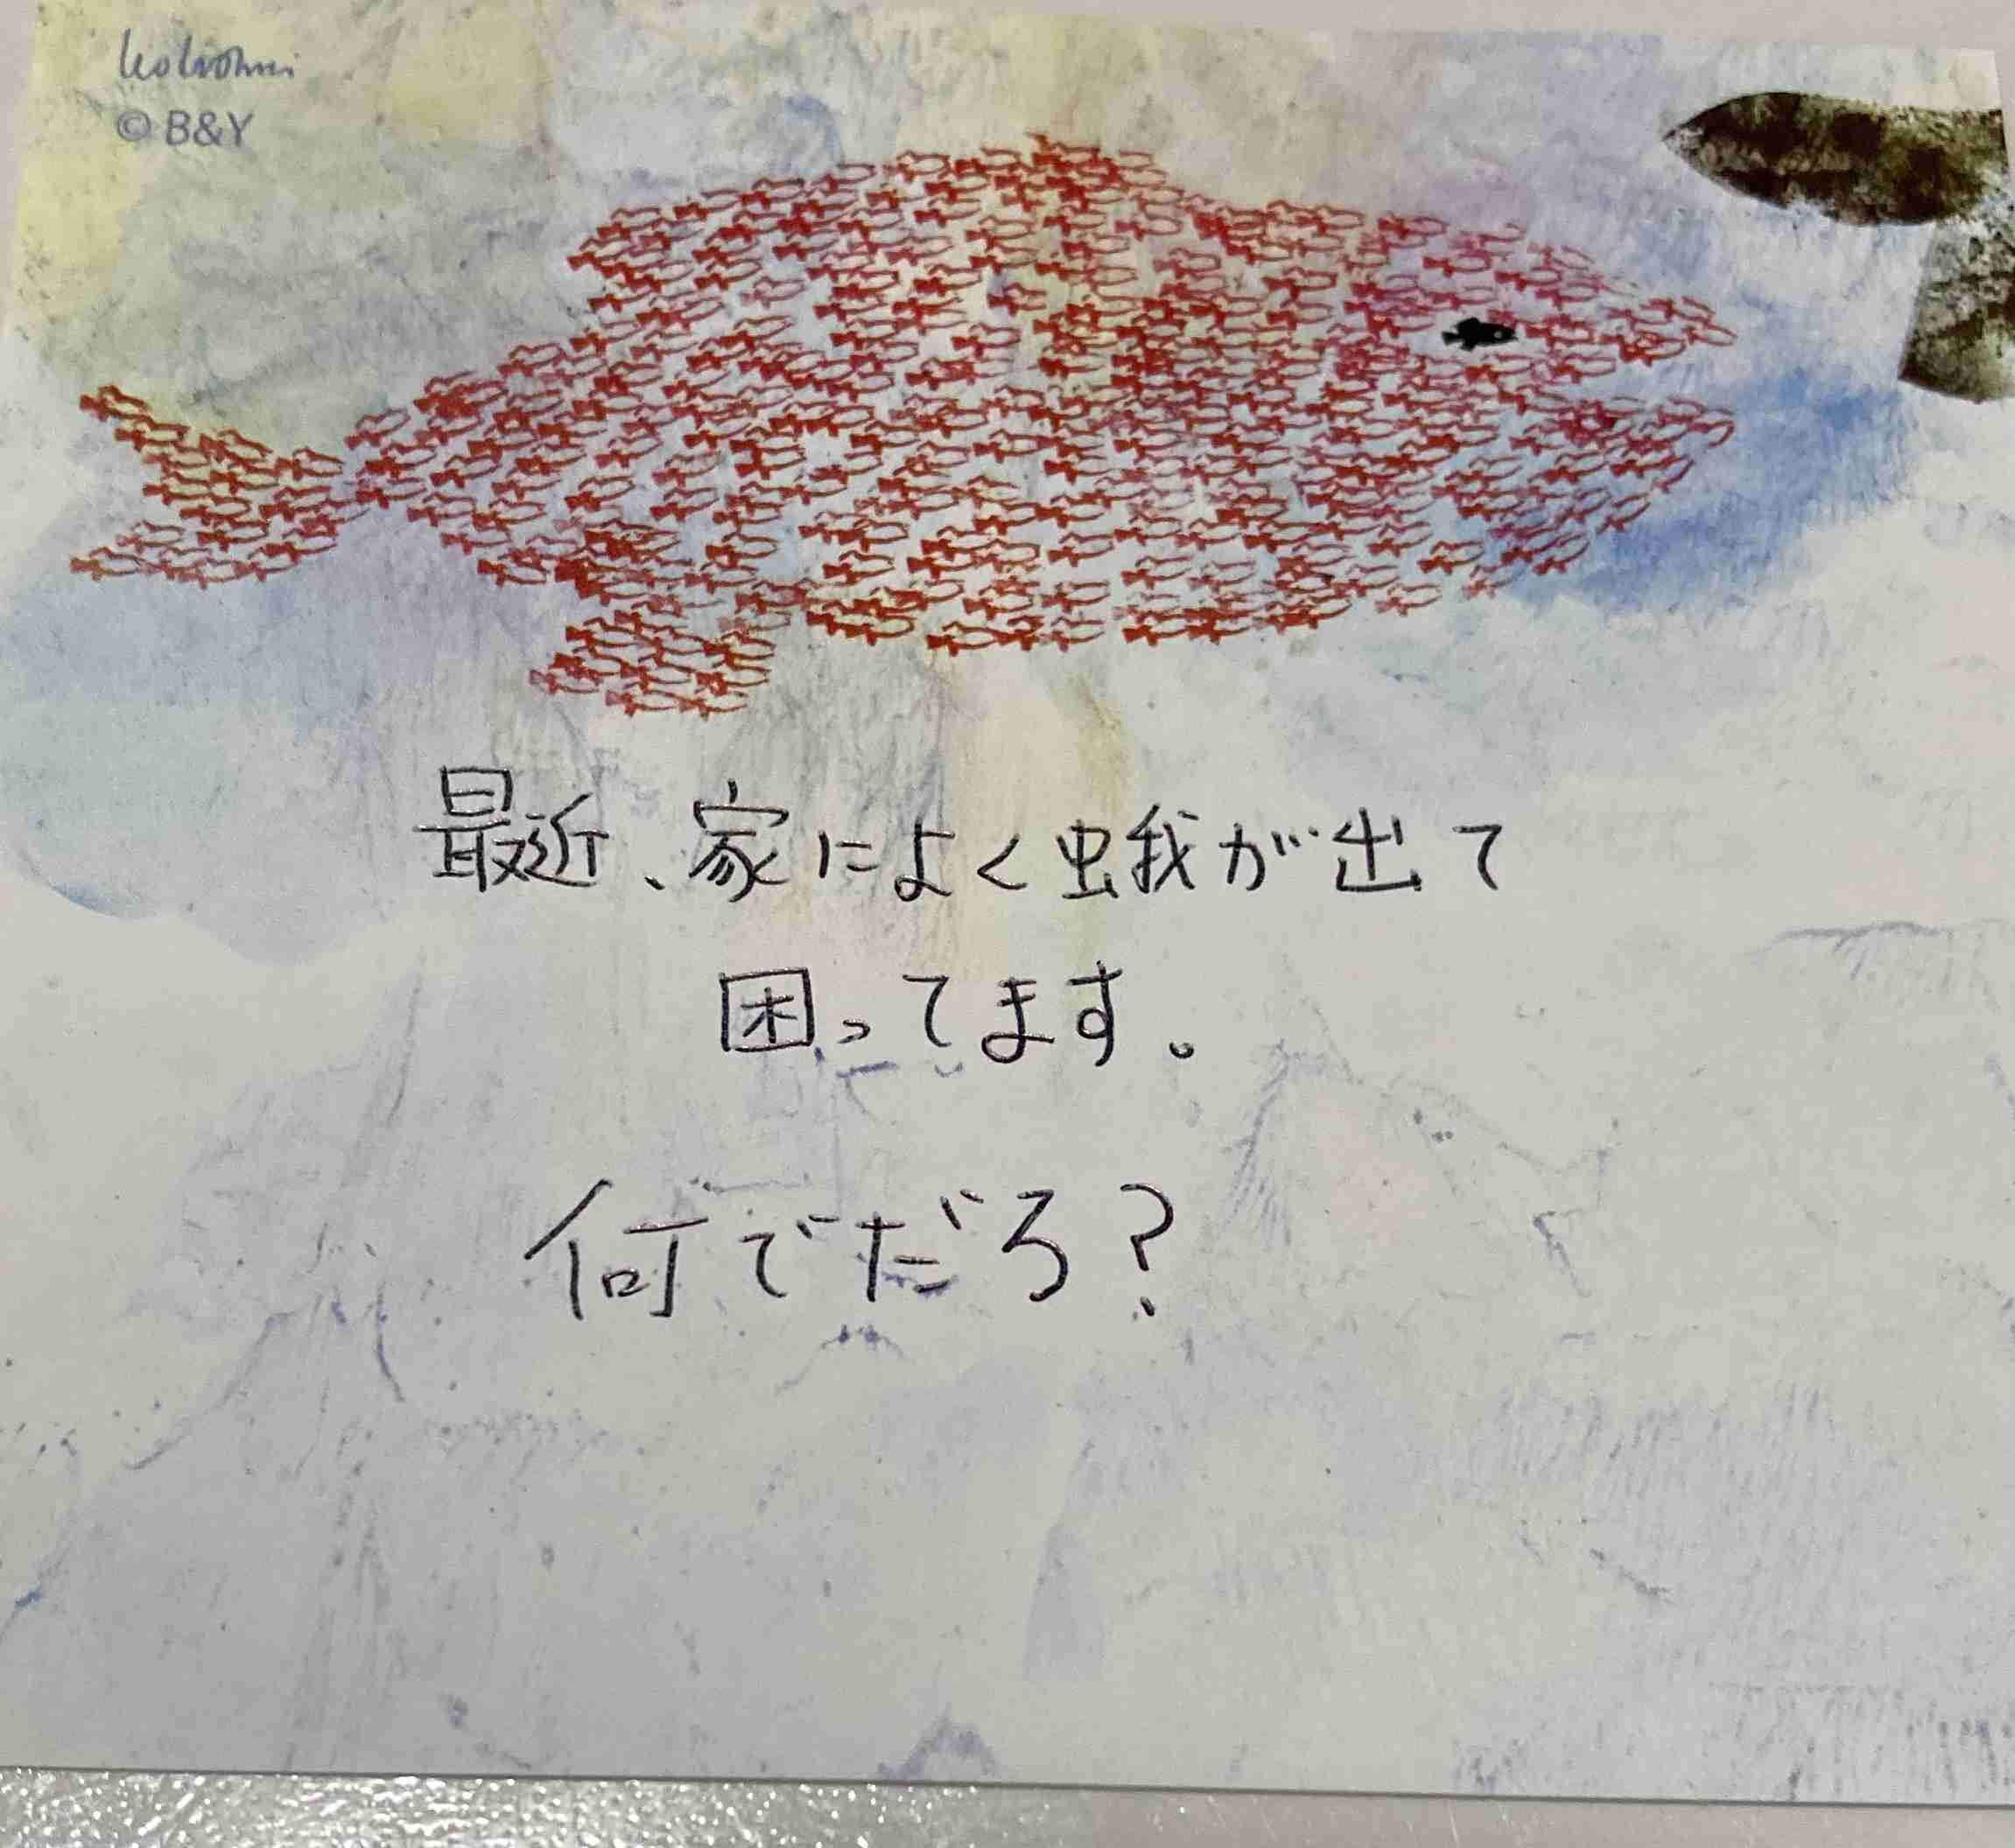 © B&Y
最近、家によく蛾が出て
困ってます。
何でだろ?